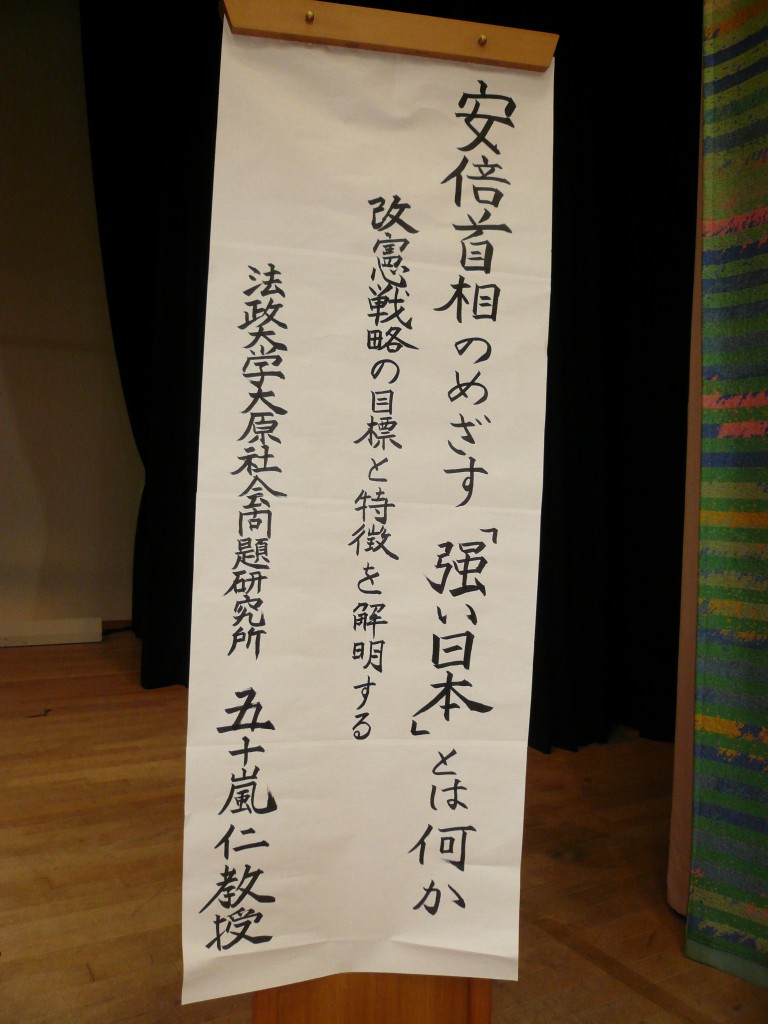 安倍首相のめざす「強い日本」とは何か
改憲戦略の目標と特徴を解明する
法政大学大原社会問題研究所　五十嵐仁教授